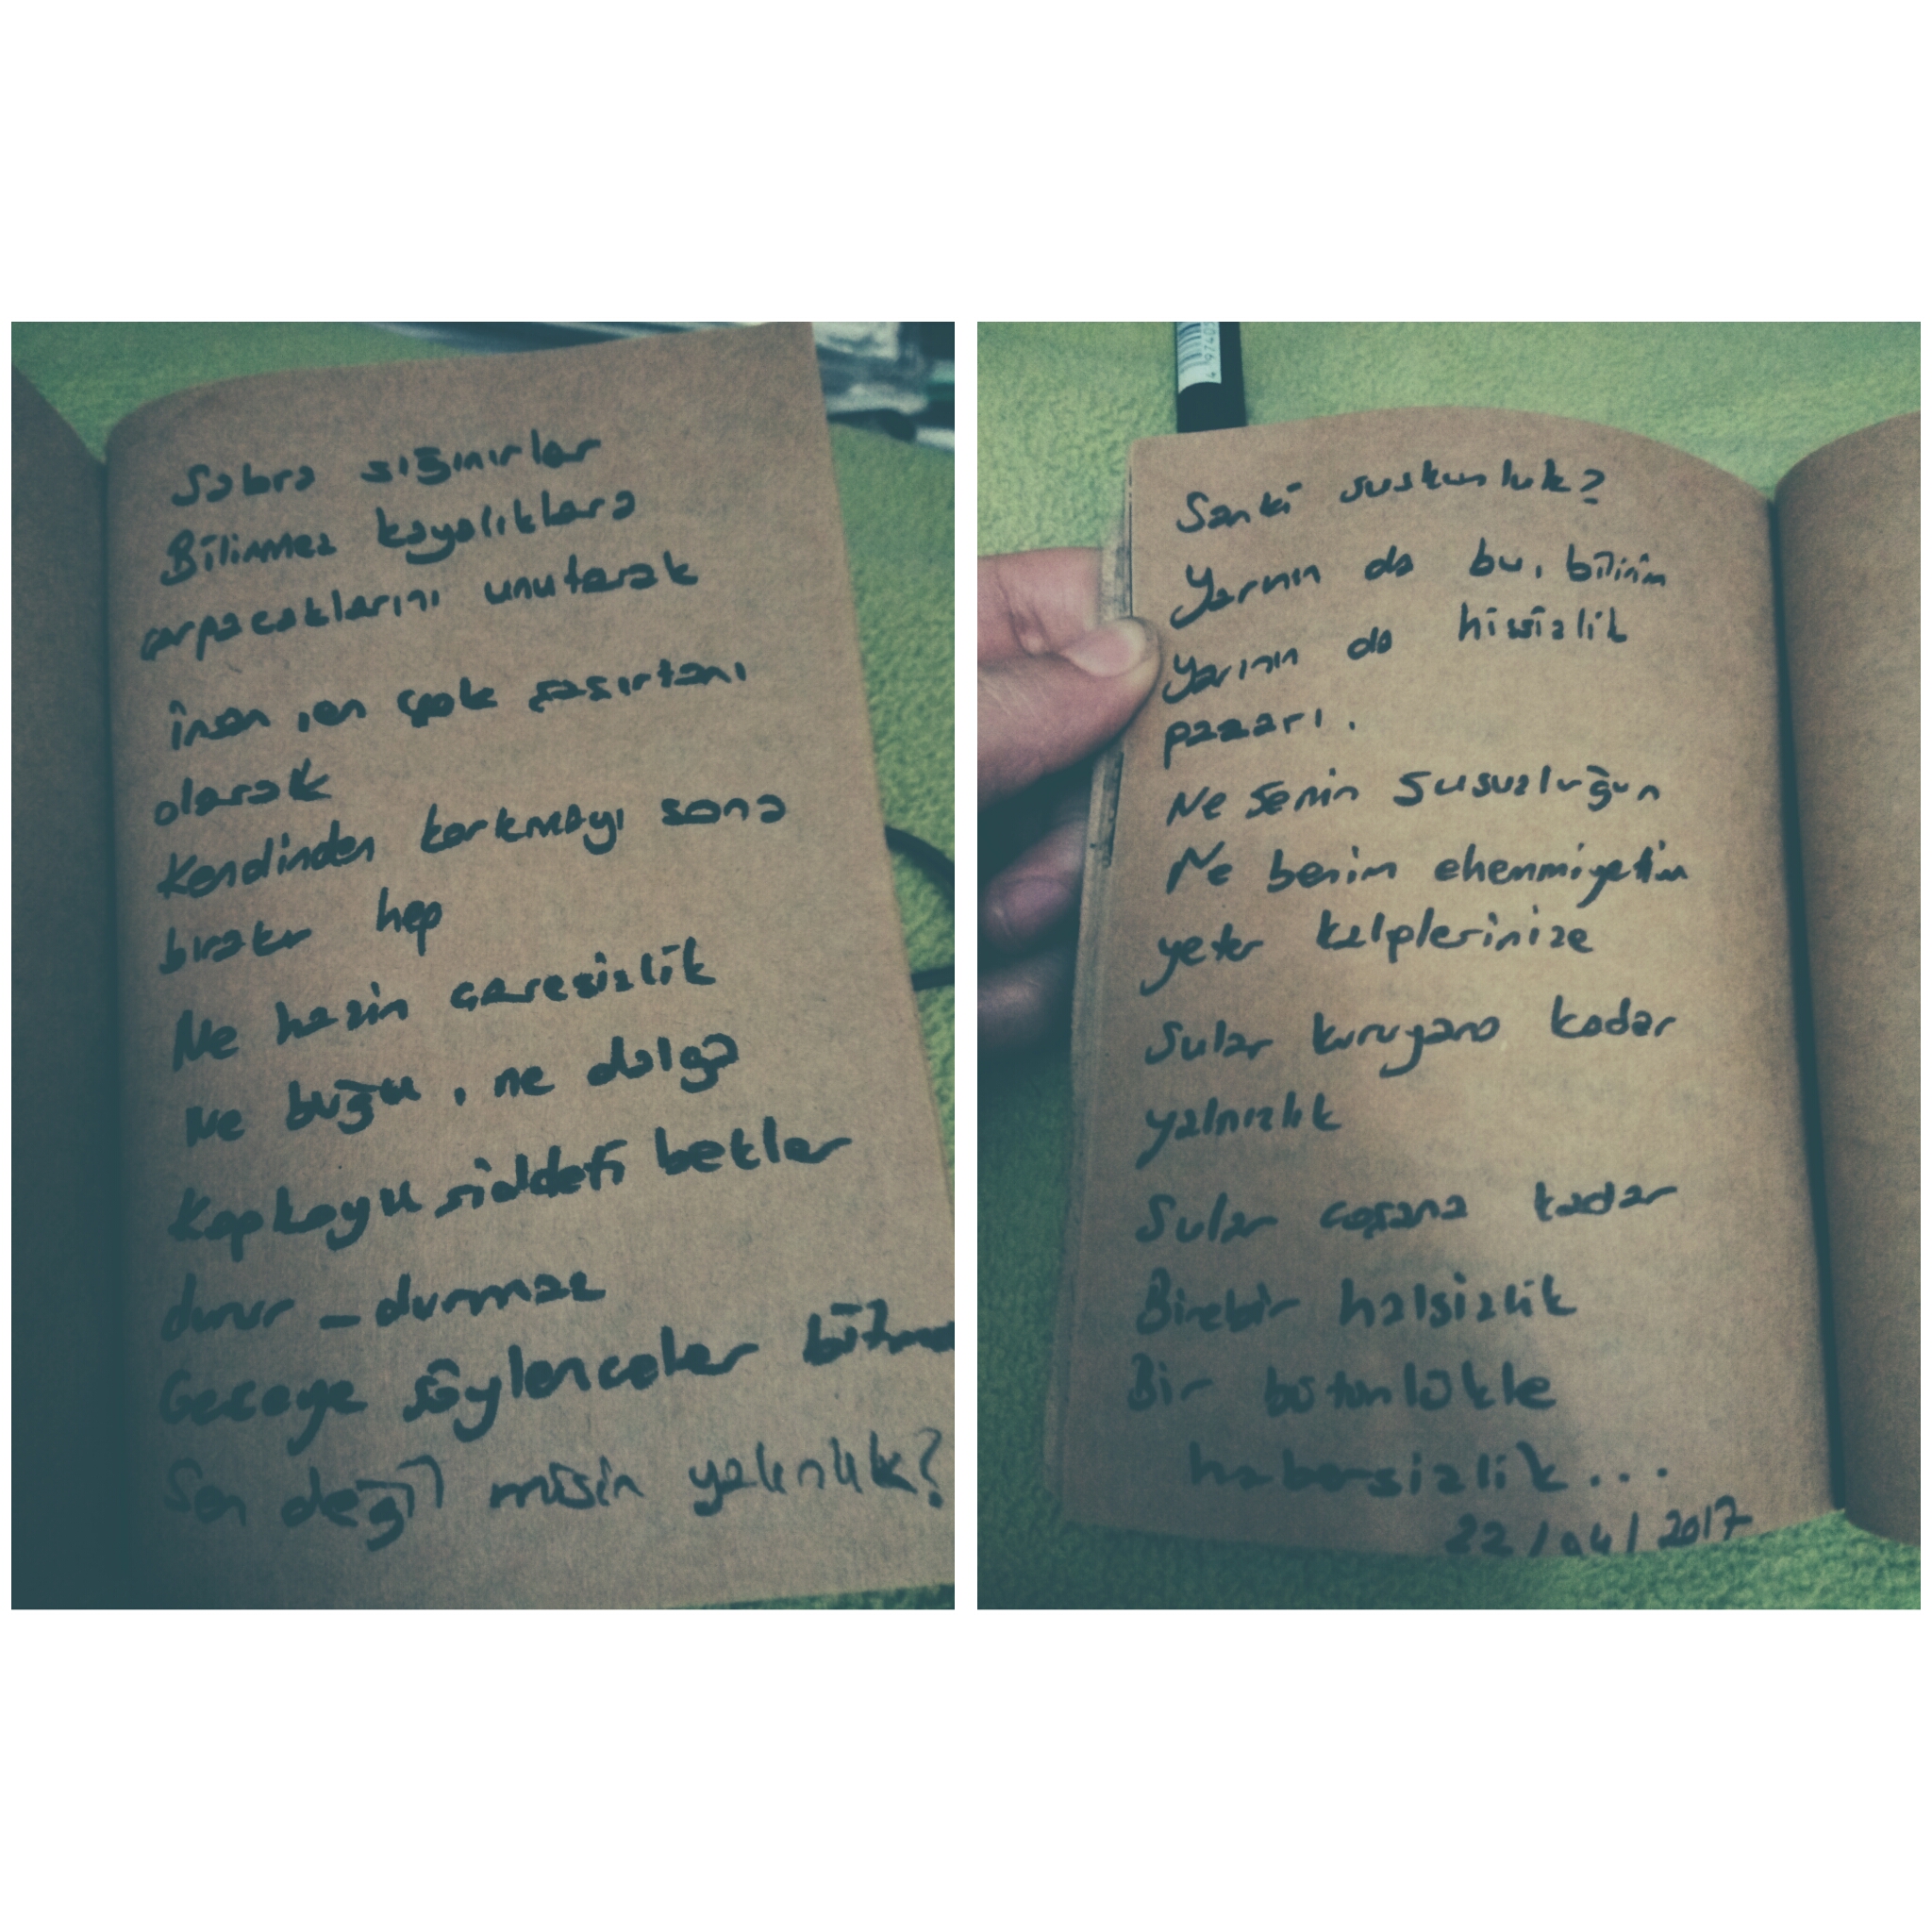 Sabra sığınırlar
Bilinmez kayalıklara
çarpacaklarını unutarak
insan, en çok şaşırtanı
olarak
Kendinden korkmayı sana
bırakır hep
Ne hazin çaresizlik
Ne buğu, ne dalga
Kopkoyu şiddeti bekler
durur - durmaz
Geceye söylenceler bitmez
Sen değil misin yakınlık?
Sanki suskunluk?
Yarının da bu, bilirim
Yarının da hissizlik
pazarı.
Ne senin susuzluğun
Ne benim ehemmiyetim
yeter kalplerinize
Sular kuruyana kadar
yalnızlık
Sular coşana kadar
Birebir halsizlik
Bir bütünlükle
habersizlik...
22/04/2017